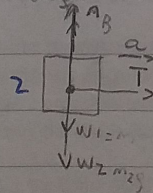 A_B
a
T
2
W1=m
W2 m2g